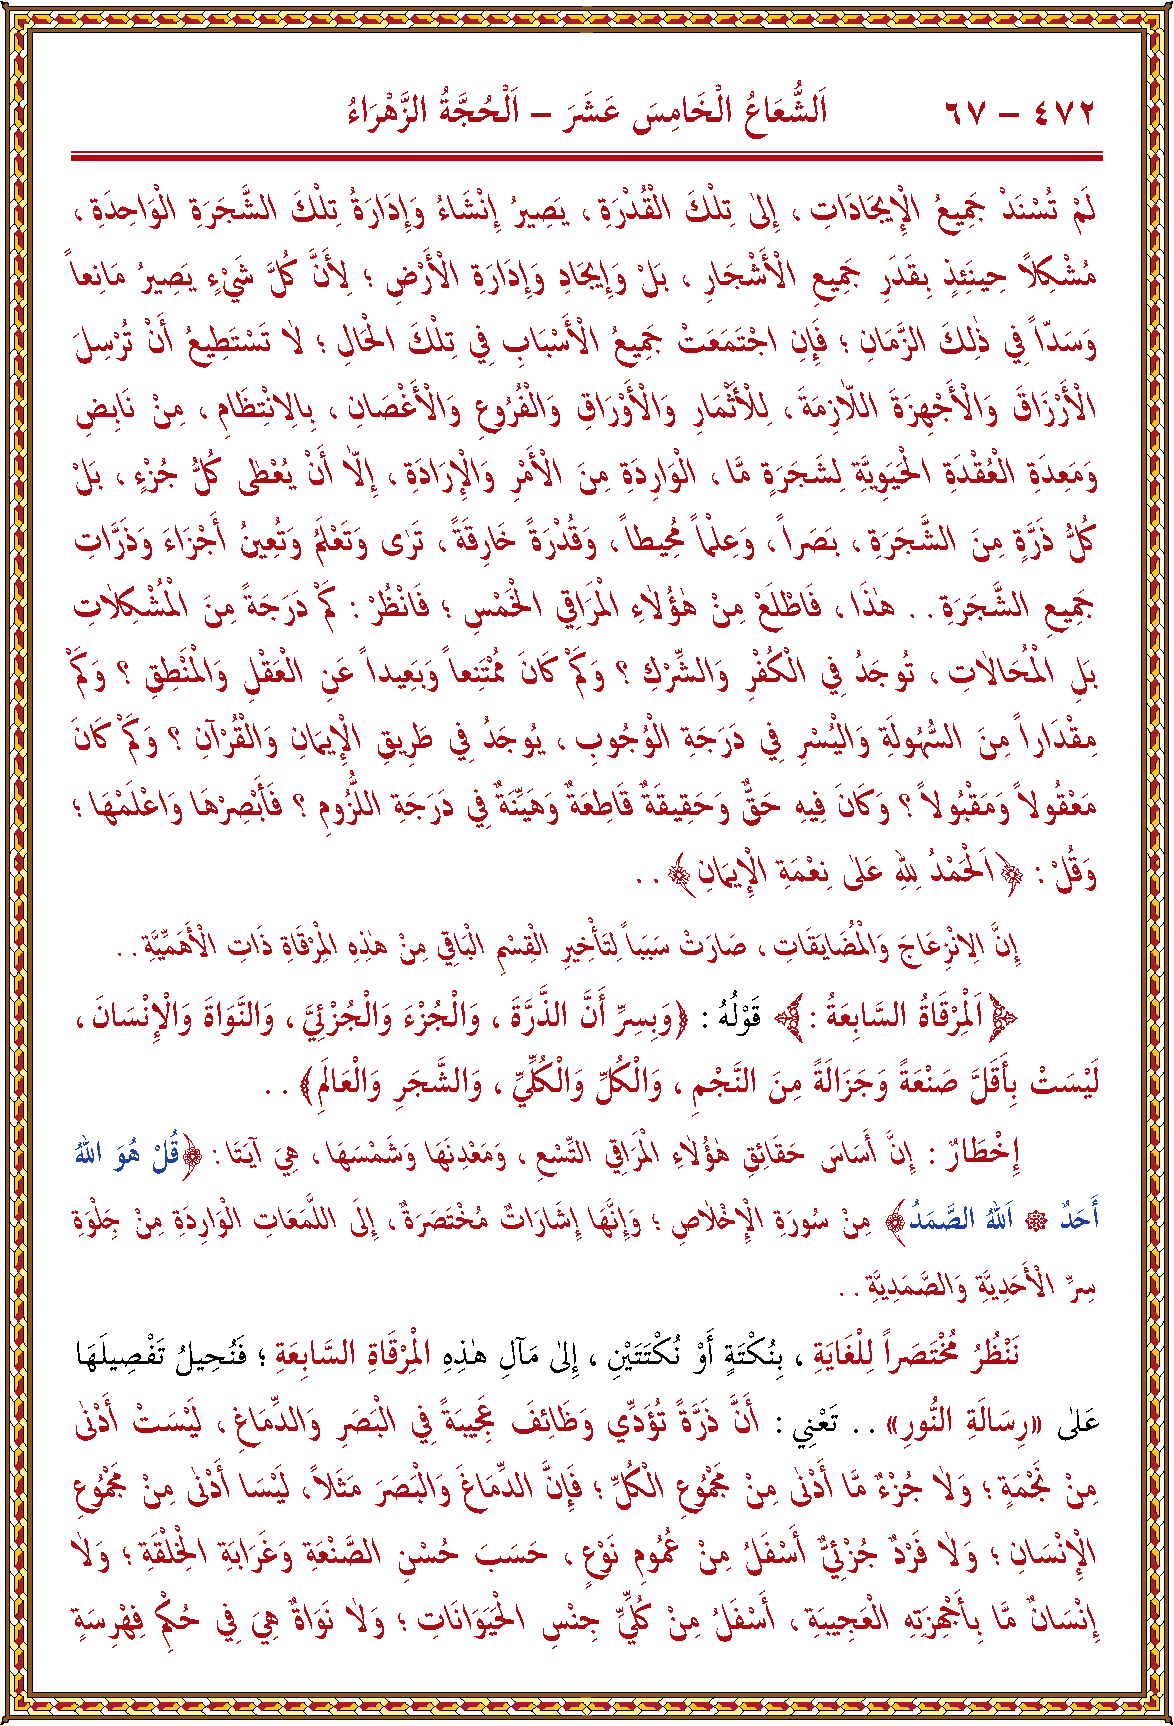 ٤٧٢ – ٦٧ اَلشُّعَاعُ الْخَامِسَ عَشَرَ – اَلْحُجَّةُ الزَّهْرَاءُ
لَمْ تُسْنَدْ جَمِيعُ الْإِيجَادَاتِ ، إِلىٰ تِلْكَ الْقُدْرَةِ ، يَصِيرُ إِنْشَاءُ وَإِدَارَةُ تِلْكَ الشَّجَرَةِ الْوَاحِدَةِ ،
مُشْكِلاً حِينَئِذٍ بِقَدَرِ جَمِيعِ الْأَشْجَارِ ، بَلْ وَإِيجَادِ وَإِدَارَةِ الْأَرْضِ ؛ لِأَنَّ كُلَّ شَيْءٍ يَصِيرُ مَانِعاً
وَسَدّاً فِي ذٰلِكَ الزَّمَانِ ؛ فَإِنِ اجْتَمَعَتْ جَمِيعُ الْأَسْبَابِ فِي تِلْكَ الْحَالِ ؛ لاٰ تَسْتَطِيعُ أَنْ تُرْسِلَ
الْأَرْزَاقَ وَالْأَجْهِزَةَ اللاَّزِمَةَ ، لِلْأَثْمَارِ وَالْأَوْرَاقِ وَالْفُرُوعِ وَالْأَغْصَانِ ، بِالِانْتِظَامِ ، مِنْ نَابِضِ
وَمَعِدَةِ الْعُقْدَةِ الْحَيَوِيَّةِ لِشَجَرَةٍ مَّا ، الْوَارِدَةِ مِنَ الْأَمْرِ وَالْإِرَادَةِ ، إِلاَّ أَنْ يُعْطٰى كُلُّ جُزْءٍ ، بَلْ
كُلُّ ذَرَّةٍ مِنَ الشَّجَرَةِ ، بَصَراً ، وَعِلْماً مُحِيطاً ، وَقُدْرَةً خَارِقَةً ، تَرٰى وَتَعْلَمُ وَتُعِينُ أَجْزَاءَ وَذَرَّاتِ
جَمِيعِ الشَّجَرَةِ . . هٰذَا ، فَاطْلَعْ مِنْ هٰؤُلاٰءِ الْمَرَاقِي الْخَمْسِ ؛ فَانْظُرْ : كَمْ دَرَجَةً مِنَ الْمُشْكِلاٰتِ
بَلِ الْمُحَالاٰتِ ، تُوجَدُ فِي الْكُفْرِ وَالشِّرْكِ ؟ وَكَمْ كَانَ مُمْتَنِعاً وَبَعِيداً عَنِ الْعَقْلِ وَالْمَنْطِقِ ؟ وَكَمْ
مِقْدَاراً مِنَ السُّهُولَةِ وَالْيُسْرِ فِي دَرَجَةِ الْوُجُوبِ ، يُوجَدُ فِي طَرِيقِ الْإِيمَانِ وَالْقُرْآنِ ؟ وَكَمْ كَانَ
مَعْقُولاً وَمَقْبُولاً ؟ وَكَانَ فِيهِ حَقٌّ وَحَقِيقَةٌ قَاطِعَةٌ وَهَيِّنَةٌ فِي دَرَجَةِ اللُّزُومِ ؟ فَأَبْصِرْهَا وَاعْلَمْهَا ؛
وَقُلْ : ﴿اَلْحَمْدُ لِلّٰهِ عَلىٰ نِعْمَةِ الْإِيمَانِ﴾ . .
إِنَّ الِانْزِعَاجَ وَالْمُضَايَقَاتِ ، صَارَتْ سَبَباً لِتَأْخِيرِ الْقِسْمِ الْبَاقِي مِنْ هٰذِهِ الْمِرْقَاةِ ذَاتِ الْأَهَمِّيَّةِ . .
﴿اَلْمِرْقَاةُ السَّابِعَةُ :﴾ قَوْلُهُ : ﴿وَبِسِرِّ أَنَّ الذَّرَّةَ ، وَالْجُزْءَ وَالْجُزْئِيَّ ، وَالنَّوَاةَ وَالْإِنْسَانَ ،
لَيْسَتْ بِأَقَلَّ صَنْعَةً وَجَزَالَةً مِنَ النَّجْمِ ، وَالْكُلِّ وَالْكُلِّيِّ ، وَالشَّجَرِ وَالْعَالَمِ﴾ . .
إِخْطَارٌ : إِنَّ أَسَاسَ حَقَائِقِ هٰؤُلاٰءِ الْمَرَاقِي التِّسْعِ ، وَمَعْدِنَهَا وَشَمْسَهَا ، هِيَ آيَتَا : ﴿قُلْ هُوَ اللهُ
أَحَدٌ ۞ اَللهُ الصَّمَدُ﴾ مِنْ سُورَةِ الْإِخْلاٰصِ ؛ وَإِنَّهَا إِشَارَاتٌ مُخْتَصَرَةٌ ، إِلَى اللَّمَعَاتِ الْوَارِدَةِ مِنْ جِلْوَةِ
سِرِّ الْأَحَدِيَّةِ وَالصَّمَدِيَّةِ . .
نَنْظُرُ مُخْتَصَراً لِلْغَايَةِ ، بِنُكْتَةٍ أَوْ نُكْتَتَيْنِ ، إِلىٰ مَآلِ هٰذِهِ الْمِرْقَاةِ السَّابِعَةِ ؛ فَنُحِيلُ تَفْصِيلَهَا
عَلىٰ «رِسَالَةِ النُّورِ» . . تَعْنِي : أَنَّ ذَرَّةً تُؤَدِّي وَظَائِفَ عَجِيبَةً فِي الْبَصَرِ وَالدِّمَاغِ ، لَيْسَتْ أَدْنٰى
مِنْ نَجْمَةٍ ؛ وَلاٰ جُزْءٌ مَّا أَدْنٰى مِنْ مَجْمُوعِ الْكُلِّ ؛ فَإِنَّ الدِّمَاغَ وَالْبَصَرَ مَثَلاً، لَيْسَا أَدْنٰى مِنْ مَجْمُوعِ
الْإِنْسَانِ ؛ وَلاٰ فَرْدٌ جُزْئِيٌّ أَسْفَلُ مِنْ عُمُومِ نَوْعٍ ، حَسَبَ حُسْنِ الصَّنْعَةِ وَغَرَابَةِ الْخِلْقَةِ ؛ وَلاٰ
إِنْسَانٌ مَّا بِأَجْهِزَتِهِ الْعَجِيبَةِ ، أَسْفَلُ مِنْ كُلِّيِّ جِنْسِ الْحَيَوَانَاتِ ؛ وَلاٰ نَوَاةٌ هِيَ فِي حُكْمِ فِهْرِسَةٍ